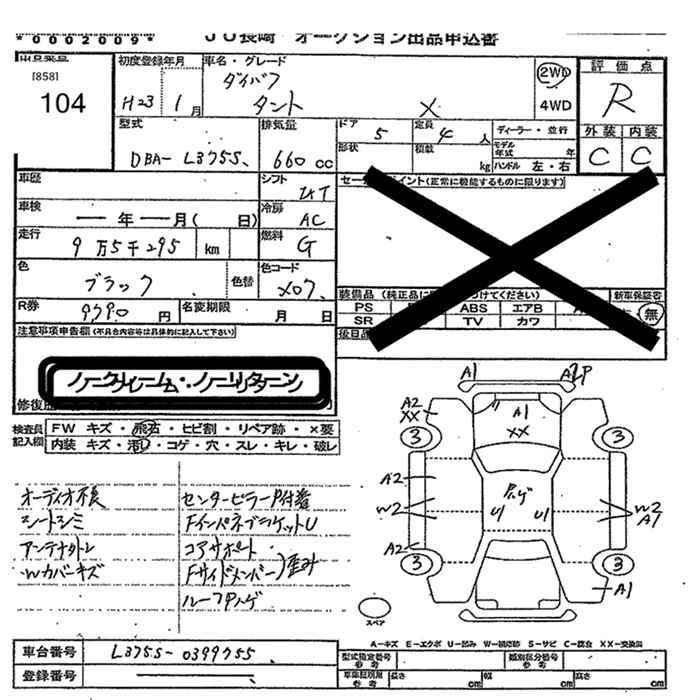 *0002009*
JU長崎 オークション出品申込書
[858]
104
初度登録年月
H23 1月
車名・グレード
ダイハツ
タント X
2WD
4WD
評価点
R
外装 内装
C C
型式
DBA- L375S
排気量
660 cc
ドア 5
形状
定員 4 人
積載 kg
ディーラー・並行
モデル年式 年
ハンドル 左・右
車歴
シフト
車検
年 月( 日)
冷房 AC
走行
9万5千295 km
燃料 G
色
ブラック
色替
色コード
X07
R券 9790 円
名変期限 月 日
セールスポイント(正常に機能するものに限ります)
装備品
PS ABS エアB
SR TV カワ
新車保証書
無
注意事項申告欄(不具合内容等は具体的に記入して下さい)
ノークレーム・ノーリターン
検査員記入欄
FW キズ・飛石・ヒビ割・リペア跡・×要
内装 キズ・汚レ・コゲ・穴・スレ・キレ・破レ
オーディオ不良
シートシミ
アンテナカケ
Wカバーキズ
センターピラーP付着
Fインパネブラケット U
コアサポート
Fサイドメンバー 歪み
ルーフPハゲ
A1
A2P
A2
XX
A1
XX
3
3
A2
W2
Pハゲ
U1
U1
W2
A1
A2
3
3
A1
スペア
A-キズ E-エクボ U-凹み W-補修跡 S-サビ C-腐食 XX-交換済
車台番号 L375S-0399755
登録番号
型式指定番号 参考
類別区分番号 参考
長さ cm 幅 cm 高さ cm